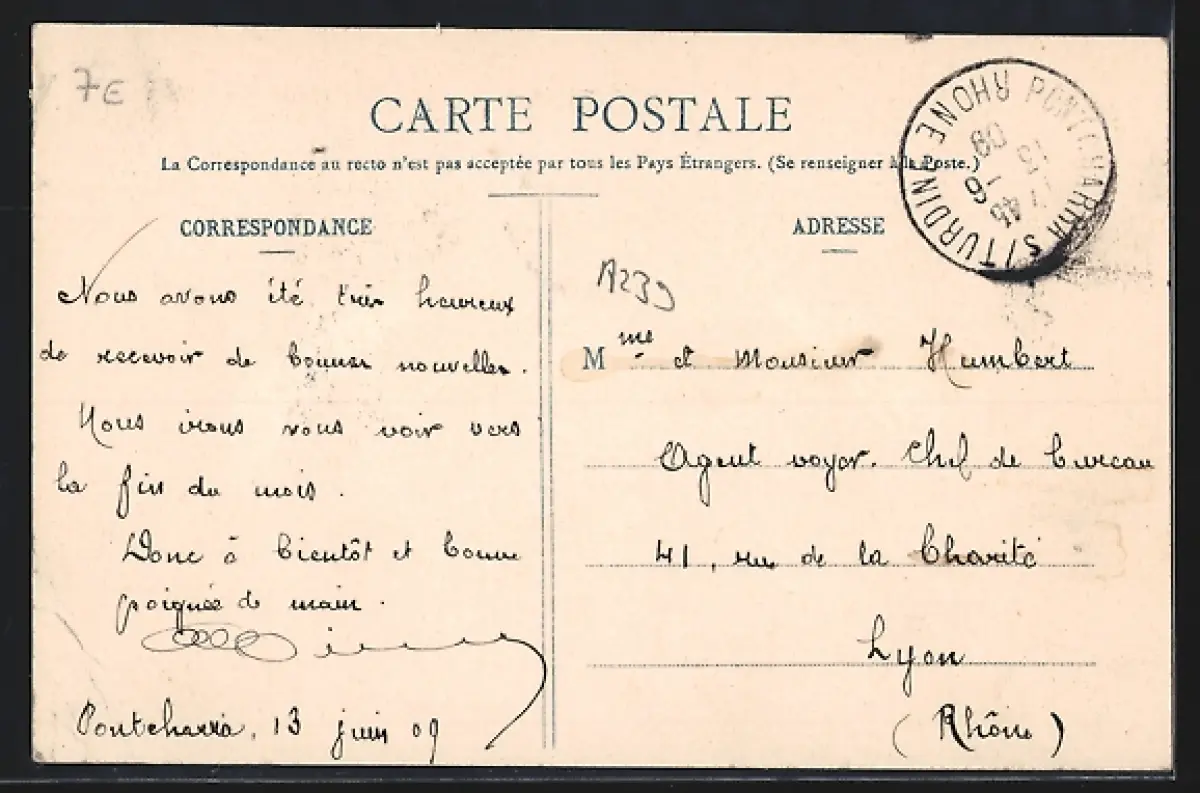 7E
CARTE POSTALE
La Correspondance au recto n'est pas acceptée par tous les Pays Étrangers. (Se renseigner à la Poste.)
PONTCHARRA S/TURDINE RHONE
17 45
13
6
09
CORRESPONDANCE
Nous avons été très heureux
de recevoir de bonnes nouvelles.
Nous irons vous voir vers
la fin du mois.
Donc à bientôt et bonne
poignée de main.
Pontcharra, 13 juin 09
ADRESSE
A239
Mme et Monsieur Humbert
Agent voyer. Chef de bureau
41, rue de la Charité
Lyon
(Rhône)